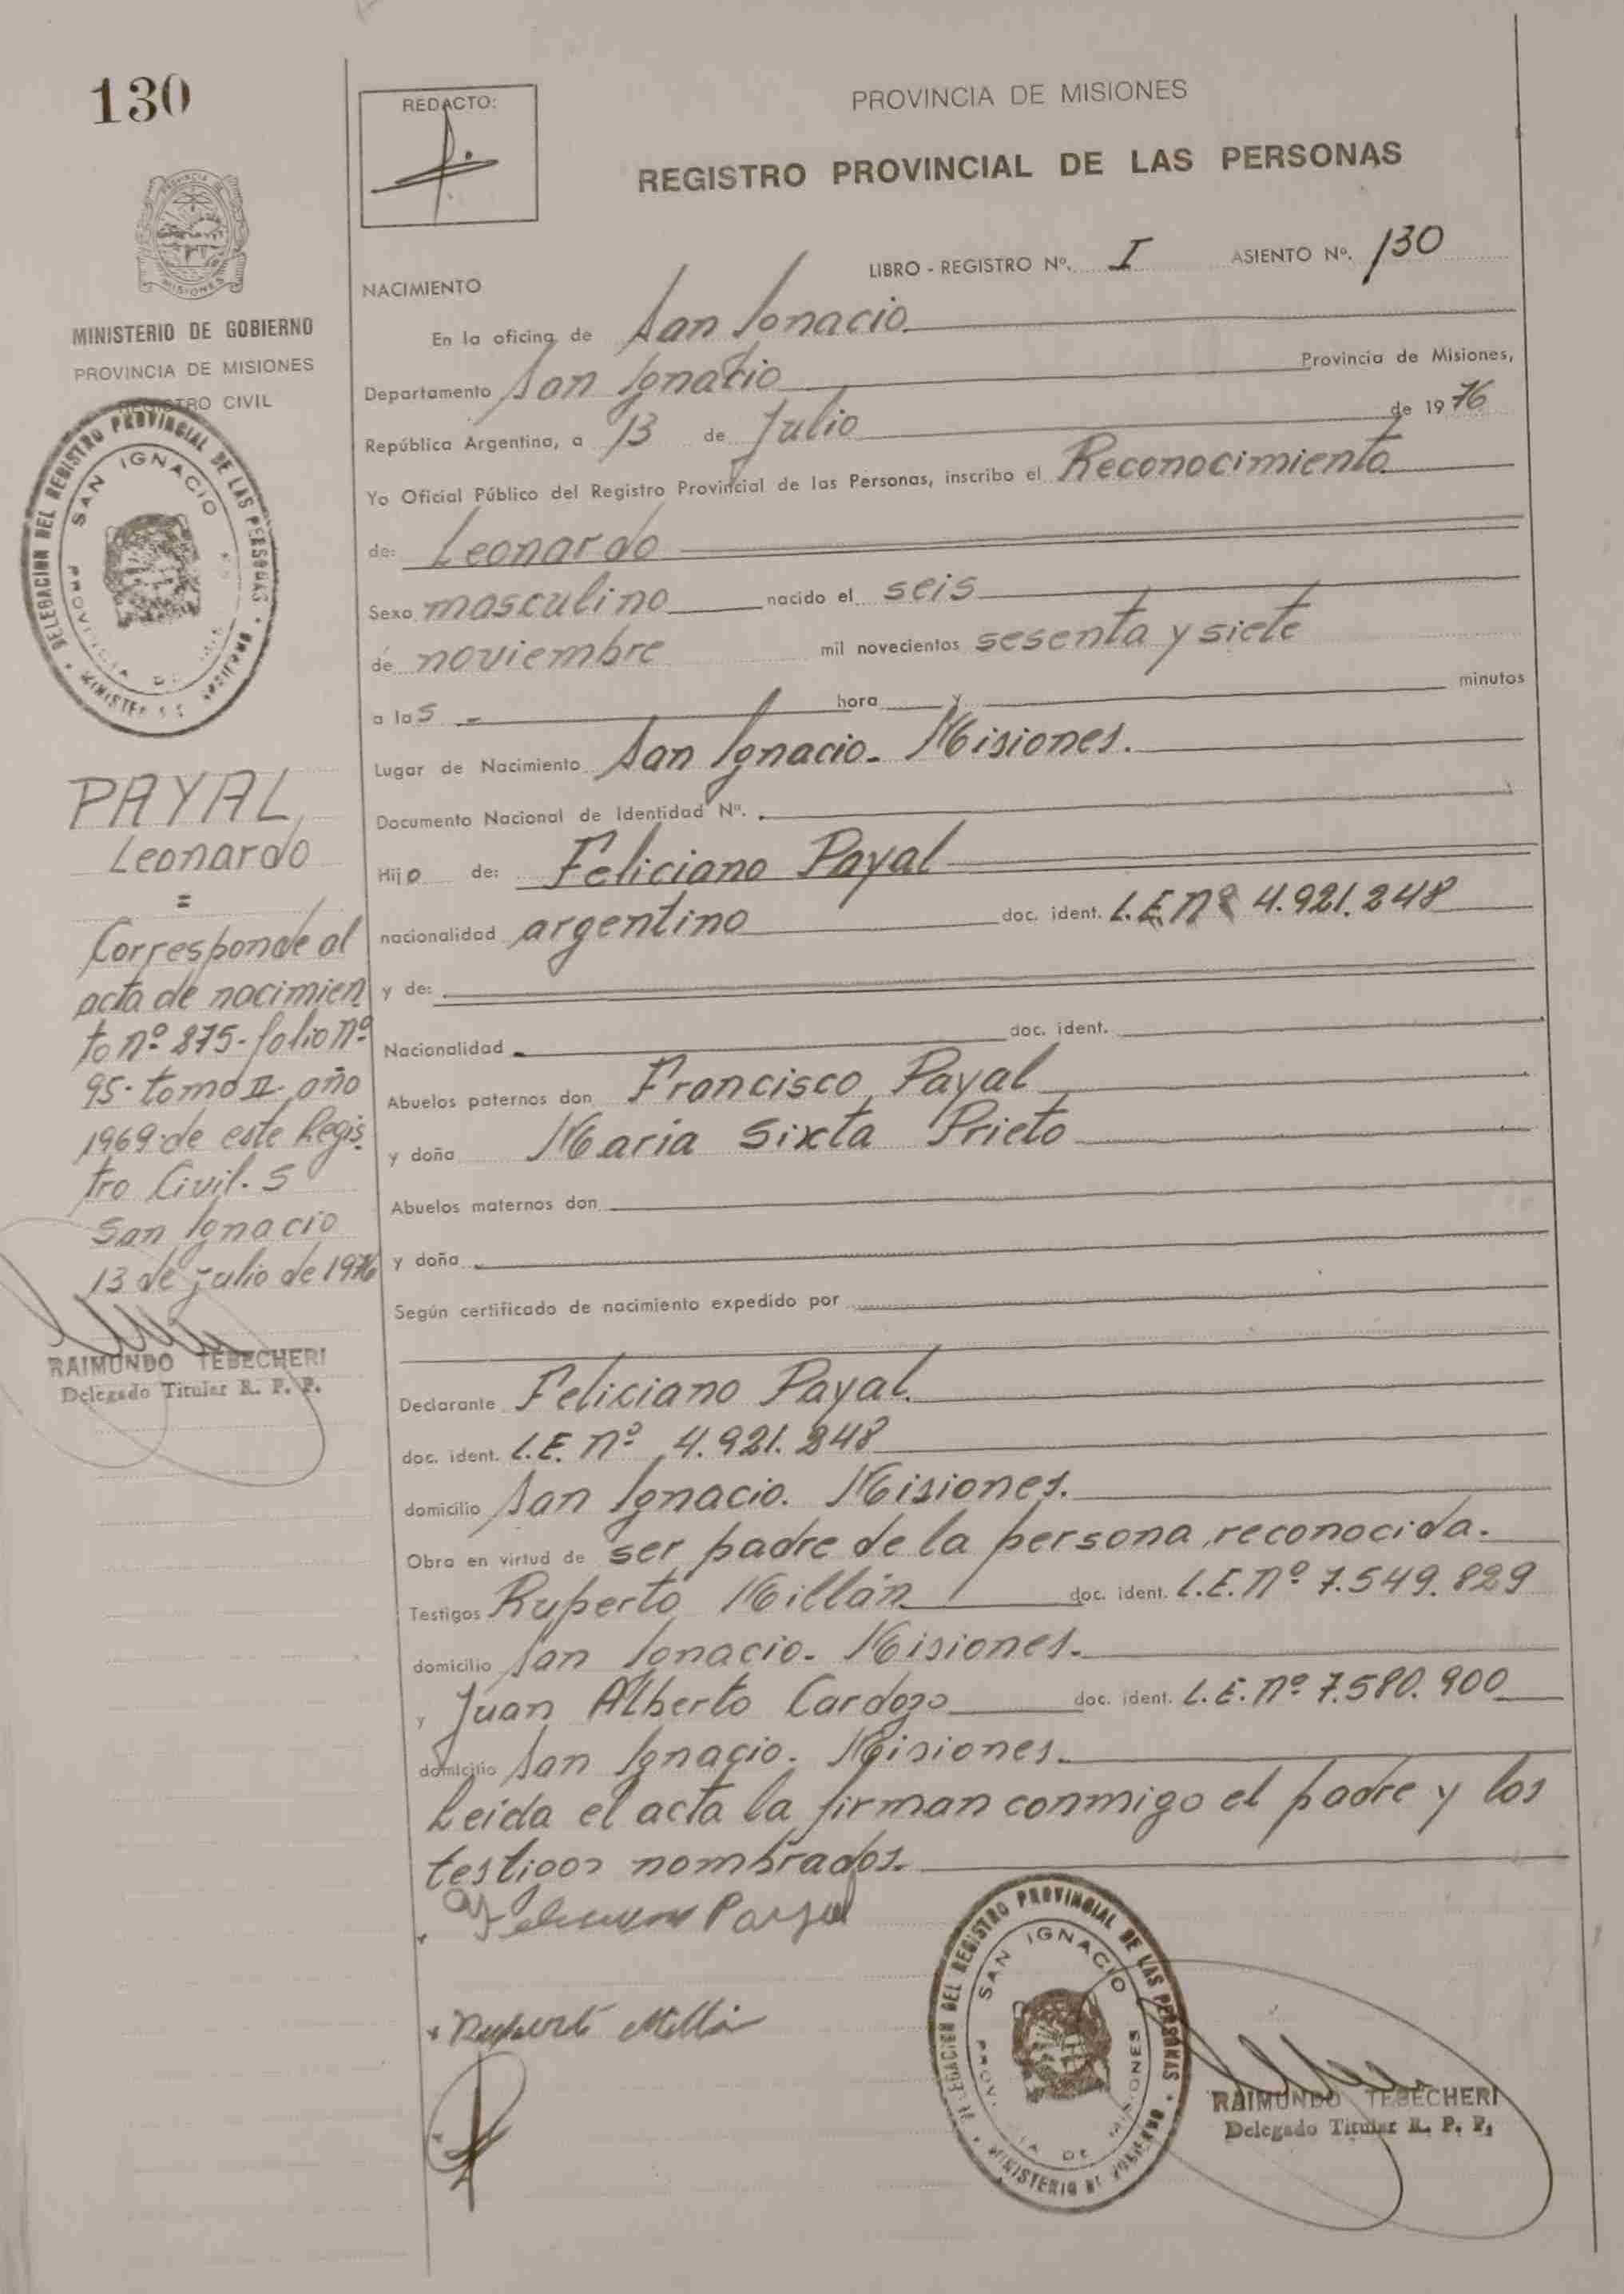 130
REDACTO:
PROVINCIA DE MISIONES
REGISTRO PROVINCIAL DE LAS PERSONAS
LIBRO - REGISTRO Nº. I ASIENTO Nº. 130
NACIMIENTO
En la oficina de San Ignacio
Departamento San Ignacio Provincia de Misiones,
República Argentina, a 13 de Julio de 1976
Yo Oficial Público del Registro Provincial de las Personas, inscribo el Reconocimiento
de: Leonardo
Sexo masculino nacido el seis
de noviembre mil novecientos sesenta y siete
a las - hora y minutos
Lugar de Nacimiento San Ignacio. Misiones.
Documento Nacional de Identidad Nº.
Hijo de: Feliciano Payal
nacionalidad argentino doc. ident. L.E. Nº 4.921.248
y de:
Nacionalidad doc. ident.
Abuelos paternos don Francisco Payal
y doña Maria Sixta Prieto
Abuelos maternos don
y doña
Según certificado de nacimiento expedido por
Declarante Feliciano Payal.
doc. ident. L.E. Nº 4.921.248
domicilio San Ignacio. Misiones.
Obra en virtud de ser padre de la persona reconocida.
Testigos Ruperto Millán doc. ident. L.E. Nº 7.549.829
domicilio San Ignacio. Misiones.
y Juan Alberto Cardozo doc. ident. L.E. Nº 7.580.900
domicilio San Ignacio. Misiones.
Leida el acta la firman conmigo el padre y los
testigos nombrados.
Payal
Ruperto Millán
DELEGACION DEL REGISTRO PROVINCIAL DE LAS PERSONAS
SAN IGNACIO
PROVINCIA DE MISIONES
MINISTERIO DE GOBIERNO
RAIMUNDO TEBECHERI
Delegado Titular R. P. P.
PROVINCIA DE
MISIONES
MINISTERIO DE GOBIERNO
PROVINCIA DE MISIONES
REGISTRO CIVIL
DELEGACION DEL REGISTRO PROVINCIAL DE LAS PERSONAS
SAN IGNACIO
PAYAL,
Leonardo
=
Corresponde al
acta de nacimien
to nº 875- folio nº
95- tomo II- año
1969- de este Regis
tro Civil. S
San Ignacio
13 de julio de 1976
RAIMUNDO TEBECHERI
Delegado Titular R. P. P.